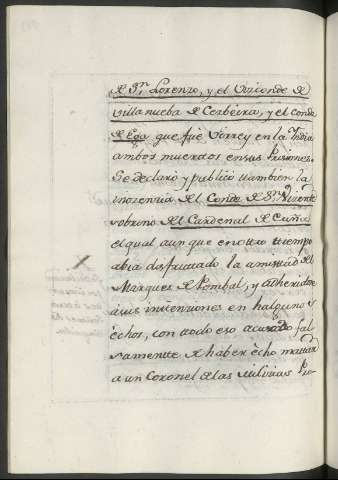 de Sn. Lorenzo, y el Visconde de
Villanueba de Cerbeira, y el conde
de Ega que fué Virrey en la India
ambos muertos en sus Prisiones.
Se declaró y publicó tambien la
inocencia del Conde de Sn. Vicente
sobrino del Cardenal de Cuña
el qual aun que en otro tiempo
abia disfrutado la amistad del
Marques de Pombal, y adherido
á sus intenciones en halgunos
échos, con todo eso acusado fal
samentte de haber écho mattar
a un Coronel de las Milicias Pro-